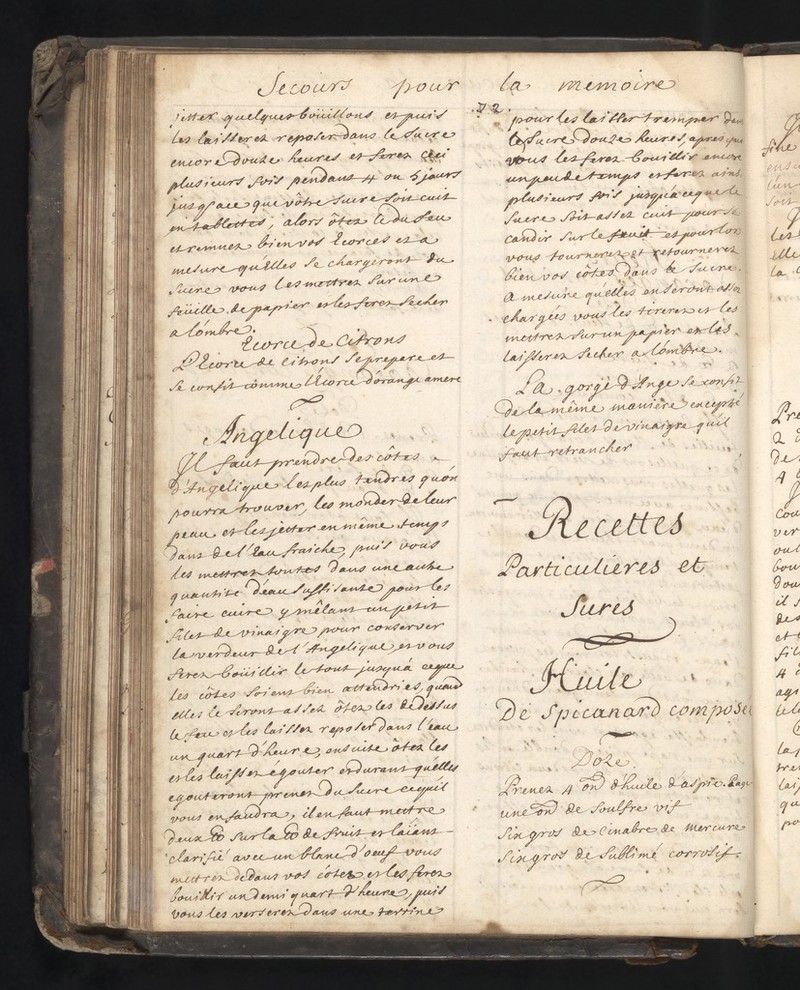 Secours pour la memoire
jetter quelques boüillons et puis
Les laisserez reposer dans le Sucre
encore douze heures et ferez ceci
plusieurs fois pendant 4 ou 5 jours
jusqu'ace que vôtre Sucre soit cuit
en tablettes, alors ôtez le du feu
et remuez bien vos Ecorces et a
mesure qu'Elles se chargeront du
Sucre vous Les mettrez sur une
feüille de papier et les ferez Secher
a lómbre.
Ecorce de Citrons
L'Ecorce de citrons se prepare et
se confit comme l'Ecorce d'orange amere
Angelique
Il faut prendre des côtes
d'Angelique les plus tendres quón
pourra trouver, les monder de leur
peau et les jetter en même temps
dans de l'Eau fraiche, puis vous
les mettrez toutes dans une autre
quantité d'eau Suffisante pour les
faire cuire y mêlant un petit
filet de vinaigre pour conserver
la verdeur de l'Angelique et vous
ferez boüillir le tout jusquá ceque
les côtes soient bien attendries, quand
elles le seront assez ôtez les de dessus
le feu et les laissez reposer dans l'eau
un quart d'heure, ensuite ôtez les
et les laissez égouter et durant quélles
egouteront prenez du Sucre cequ'il
vous en faudra, il en faut mettre
deux ℔ sur la ℔ de fruit et láiant
clarifié avec un blanc d'oeuf vous
mettrez dedans vos côtes et les ferez
boüillir un demi quart d'heure, puis
vous les verserez dans une terrine
72.
pour les laisser tremper dans
le Sucre douze heures, apres quoi
vous les ferez boüillir encore
un peu de temps et ferez ainsi
plusieurs fois jusquá ceque le
Sucre soit assez cuit pour se
candir sur le fruit et pour lors
vous tournerez et retournerez
bien vos côtes dans le Sucre
A mesure qu'elles en seront assez
chargées vous les tirerez et les
mettrez sur un papier et les
laisserez Secher a lómbre.
La gorge d'Ange se confit
De la même maniere excepté
le petit filet de vinaigre quil
faut retrancher
Recettes
Particulieres et
Sures
Huile
De Spicanard composée
Doze
Prenez 4 on d'huile d'aspic.
une on de Soulfre vif
Six gros de Cinabre de mercure
Six gros de Sublimé corrosif.